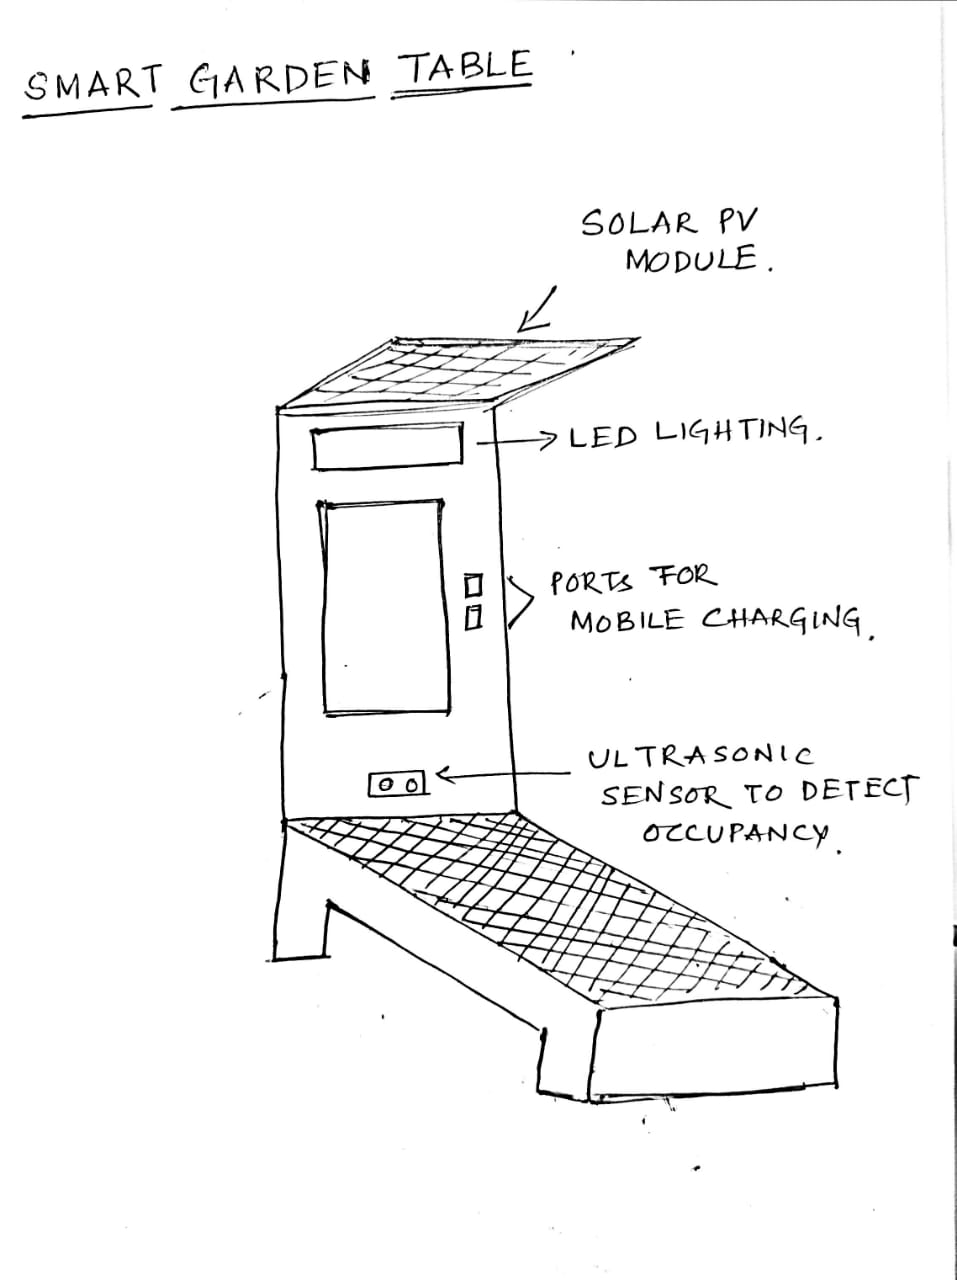 SMART GARDEN TABLE
SOLAR PV
MODULE.
LED LIGHTING.
PORTS FOR
MOBILE CHARGING.
ULTRASONIC
SENSOR TO DETECT
OCCUPANCY.